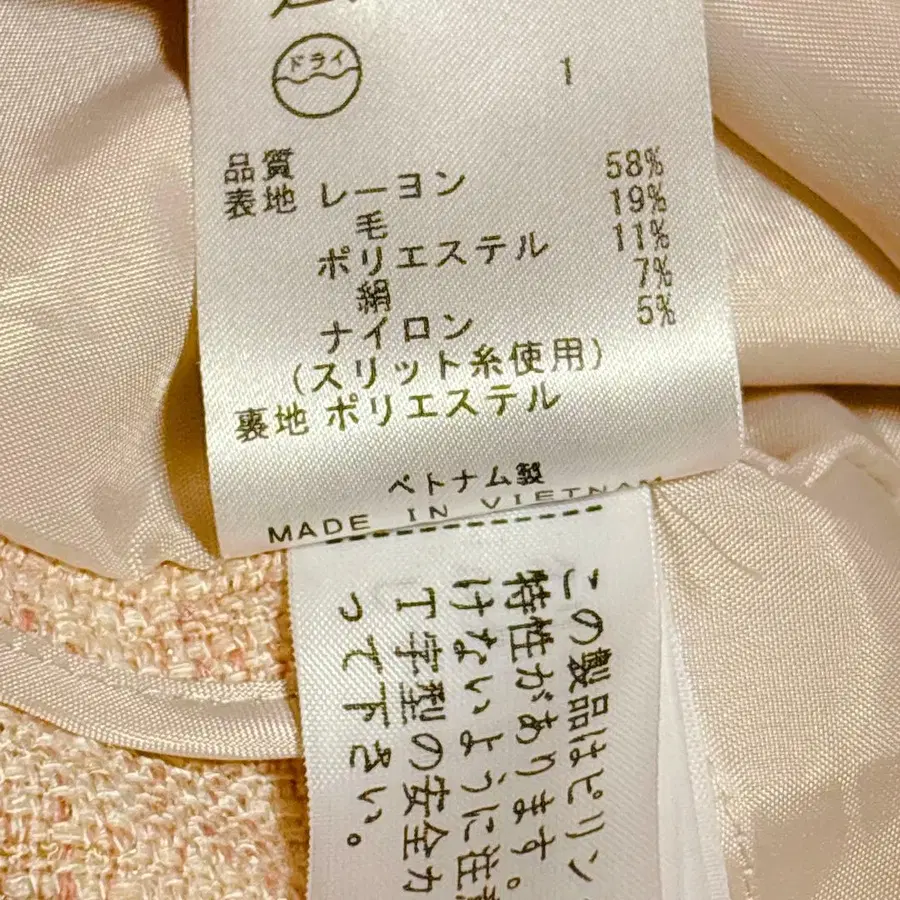 ドライ
1
品質
表地 レーヨン 58%
毛 19%
ポリエステル 11%
絹 7%
ナイロン 5%
(スリット糸使用)
裏地 ポリエステル
ベトナム製
MADE IN VIETNAM
この製品はピリン
特性があります。
けないように注意
丁字型の安全カ
って下さい。